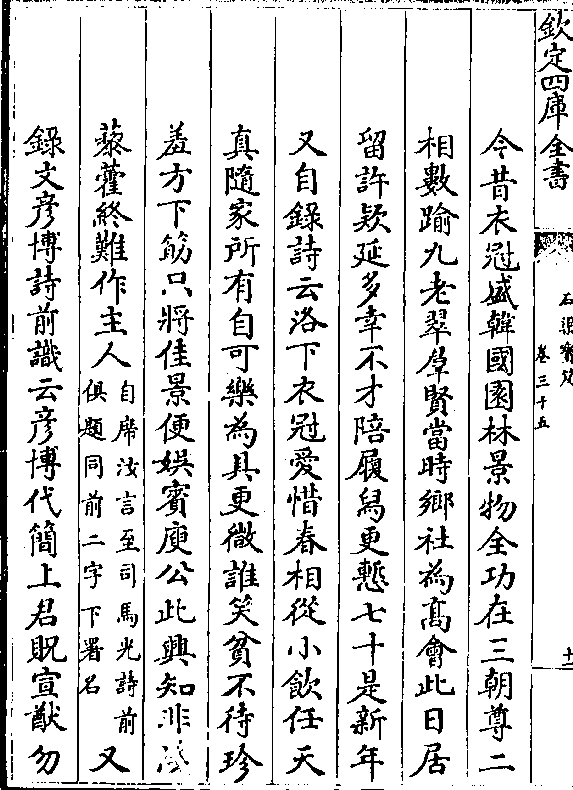 欽定四庫全書
石渠寶笈
卷三十五
十一
今昔衣冠盛韓國園林景物全功在三朝尊二
相數踰九老翠羣賢當時鄉社為髙會此日居
留許欵延多幸不才陪履舄更慙七十是新年
又自錄詩云洛下衣冠愛惜春相從小飲任天
真隨家所有自可樂為具更微誰笑貧不待珍
羞方下筯只將佳景便娱賓庾公此興知非淺
藜藿終難作主人自席汝言至司馬光詩前俱題同前二字下署名又
錄文彦博詩前識云彦博代簡上君貺宣猷勿